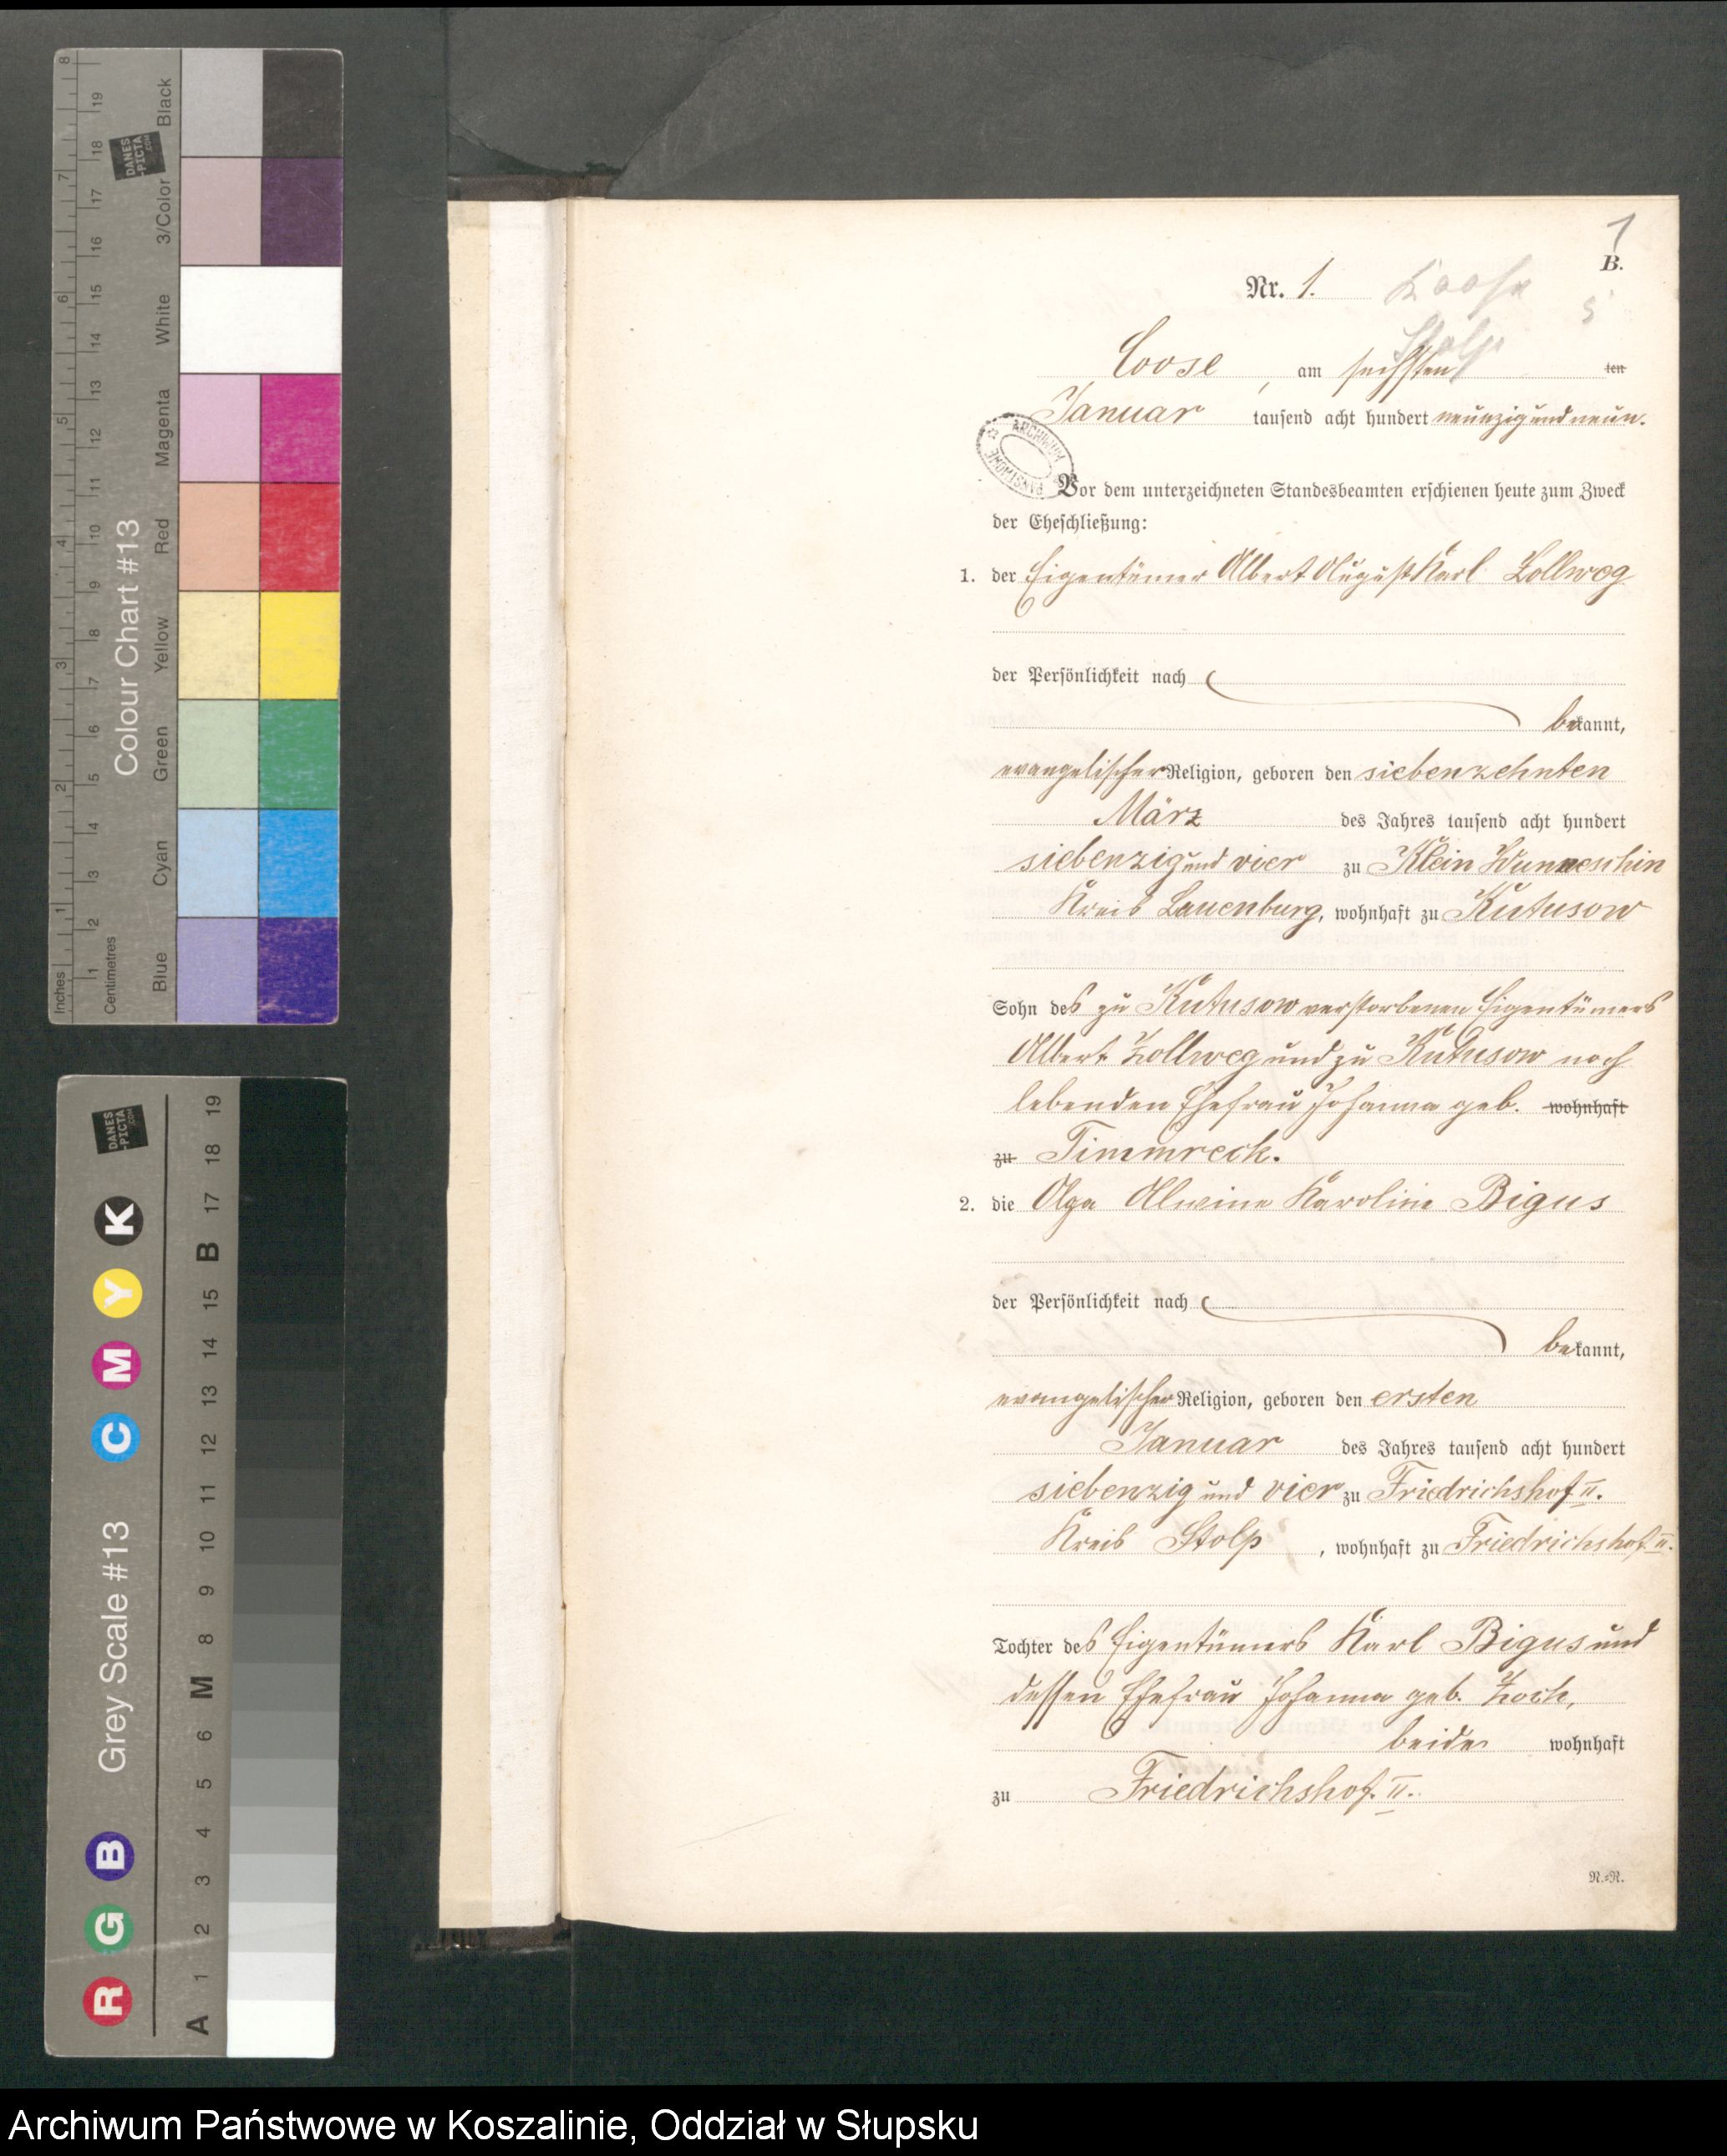 Inches
Centimetres
1 2 3 4 5 6 7 8
1 2 3 4 5 6 7 8 9 10 11 12 13 14 15 16 17 18 19
Colour Chart #13
Blue
Cyan
Green
Yellow
Red
Magenta
White
3/Color
Black
DANES
-PICTA
.COM
Grey Scale #13
R G B C M Y K
A 1 2 3 4 5 6 M 8 9 10 11 12 13 14 15 B 17 18 19
DANES
-PICTA
.COM
1
B.
Nr. 1. Koose
5
Stolp
Coose, am sechsten ten
Januar tausend acht hundert neunzig und neun.
ARCHIWUM PAŃSTWOWE
Vor dem unterzeichneten Standesbeamten erschienen heute zum Zweck
der Eheschließung:
1. der Eigentümer Albert August Karl Zollweg
der Persönlichkeit nach
bekannt,
evangelischer Religion, geboren den siebenzehnten
März des Jahres tausend acht hundert
siebenzig und vier zu Klein Wunneschin
Kreis Lauenburg, wohnhaft zu Kutusow
Sohn des zu Kutusow verstorbenen Eigentümers
Albert Zollweg und zu Kutusow noch
lebenden Ehefrau Johanna geb. wohnhaft
zu Timmreck.
2. die Olga Alwine Karoline Bigus
der Persönlichkeit nach
bekannt,
evangelischer Religion, geboren den ersten
Januar des Jahres tausend acht hundert
siebenzig und vier zu Friedrichshof II.
Kreis Stolp, wohnhaft zu Friedrichshof II.
Tochter des Eigentümers Karl Bigus und
dessen Ehefrau Johanna geb. Zoch,
beide wohnhaft
zu Friedrichshof. II.
N.=N.
Archiwum Państwowe w Koszalinie, Oddział w Słupsku